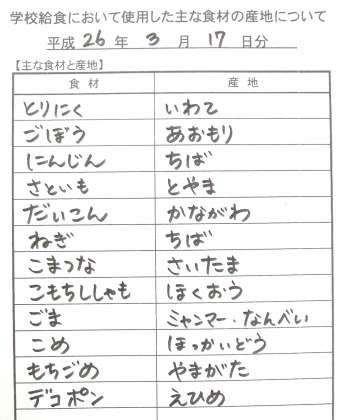 学校給食において使用した主な食材の産地について
平成 26 年 3 月 17 日分
【主な食材と産地】
食材 産地
とりにく いわて
ごぼう あおもり
にんじん ちば
さといも とやま
だいこん かながわ
ねぎ ちば
こまつな さいたま
こもちししゃも ほくおう
ごま ミャンマー・なんべい
こめ ほっかいどう
もちごめ やまがた
デコポン えひめ